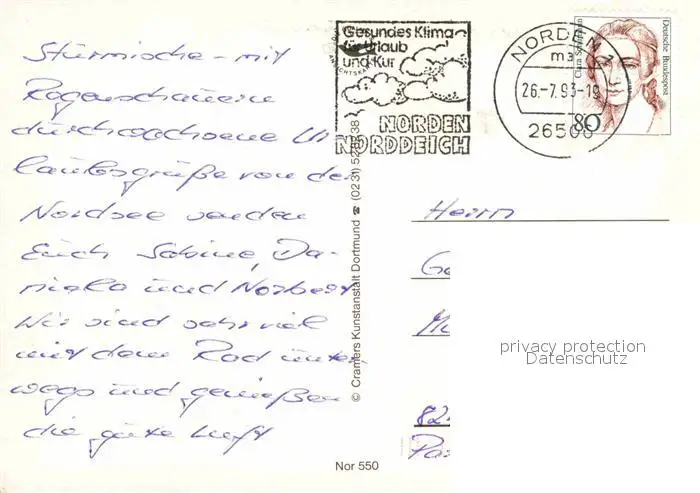 Stürmische - mit
Regenschauern
durchwachsene Ur
laubsgrüße von der
Nordsee senden
Euch Sabine, Da-
niela und Norbert
Wir sind sehr viel
mit dem Rad unter
wegs und genießen
die gute Luft
Gesundes Klima
für Urlaub
und Kur
NORDEN
NORDDEICH
NORDEN 1
ma
26.-7.93-19
26506
Clara Schumann
80
Deutsche Bundespost
© Cramers Kunstanstalt Dortmund ☎ (0231)
Nor 550
Herrn
privacy protection
Datenschutz
82